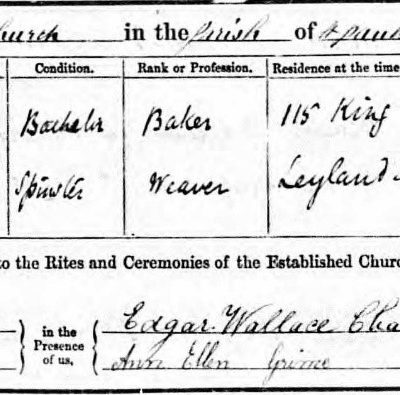 Church in the Parish of
Condition. Rank or Profession. Residence at the time
Bachelor Baker 115 King
Spinster Weaver Leyland
to the Rites and Ceremonies of the Established Churc
in the Presence of us, Edgar Wallace Cha
Ann Ellen Grime